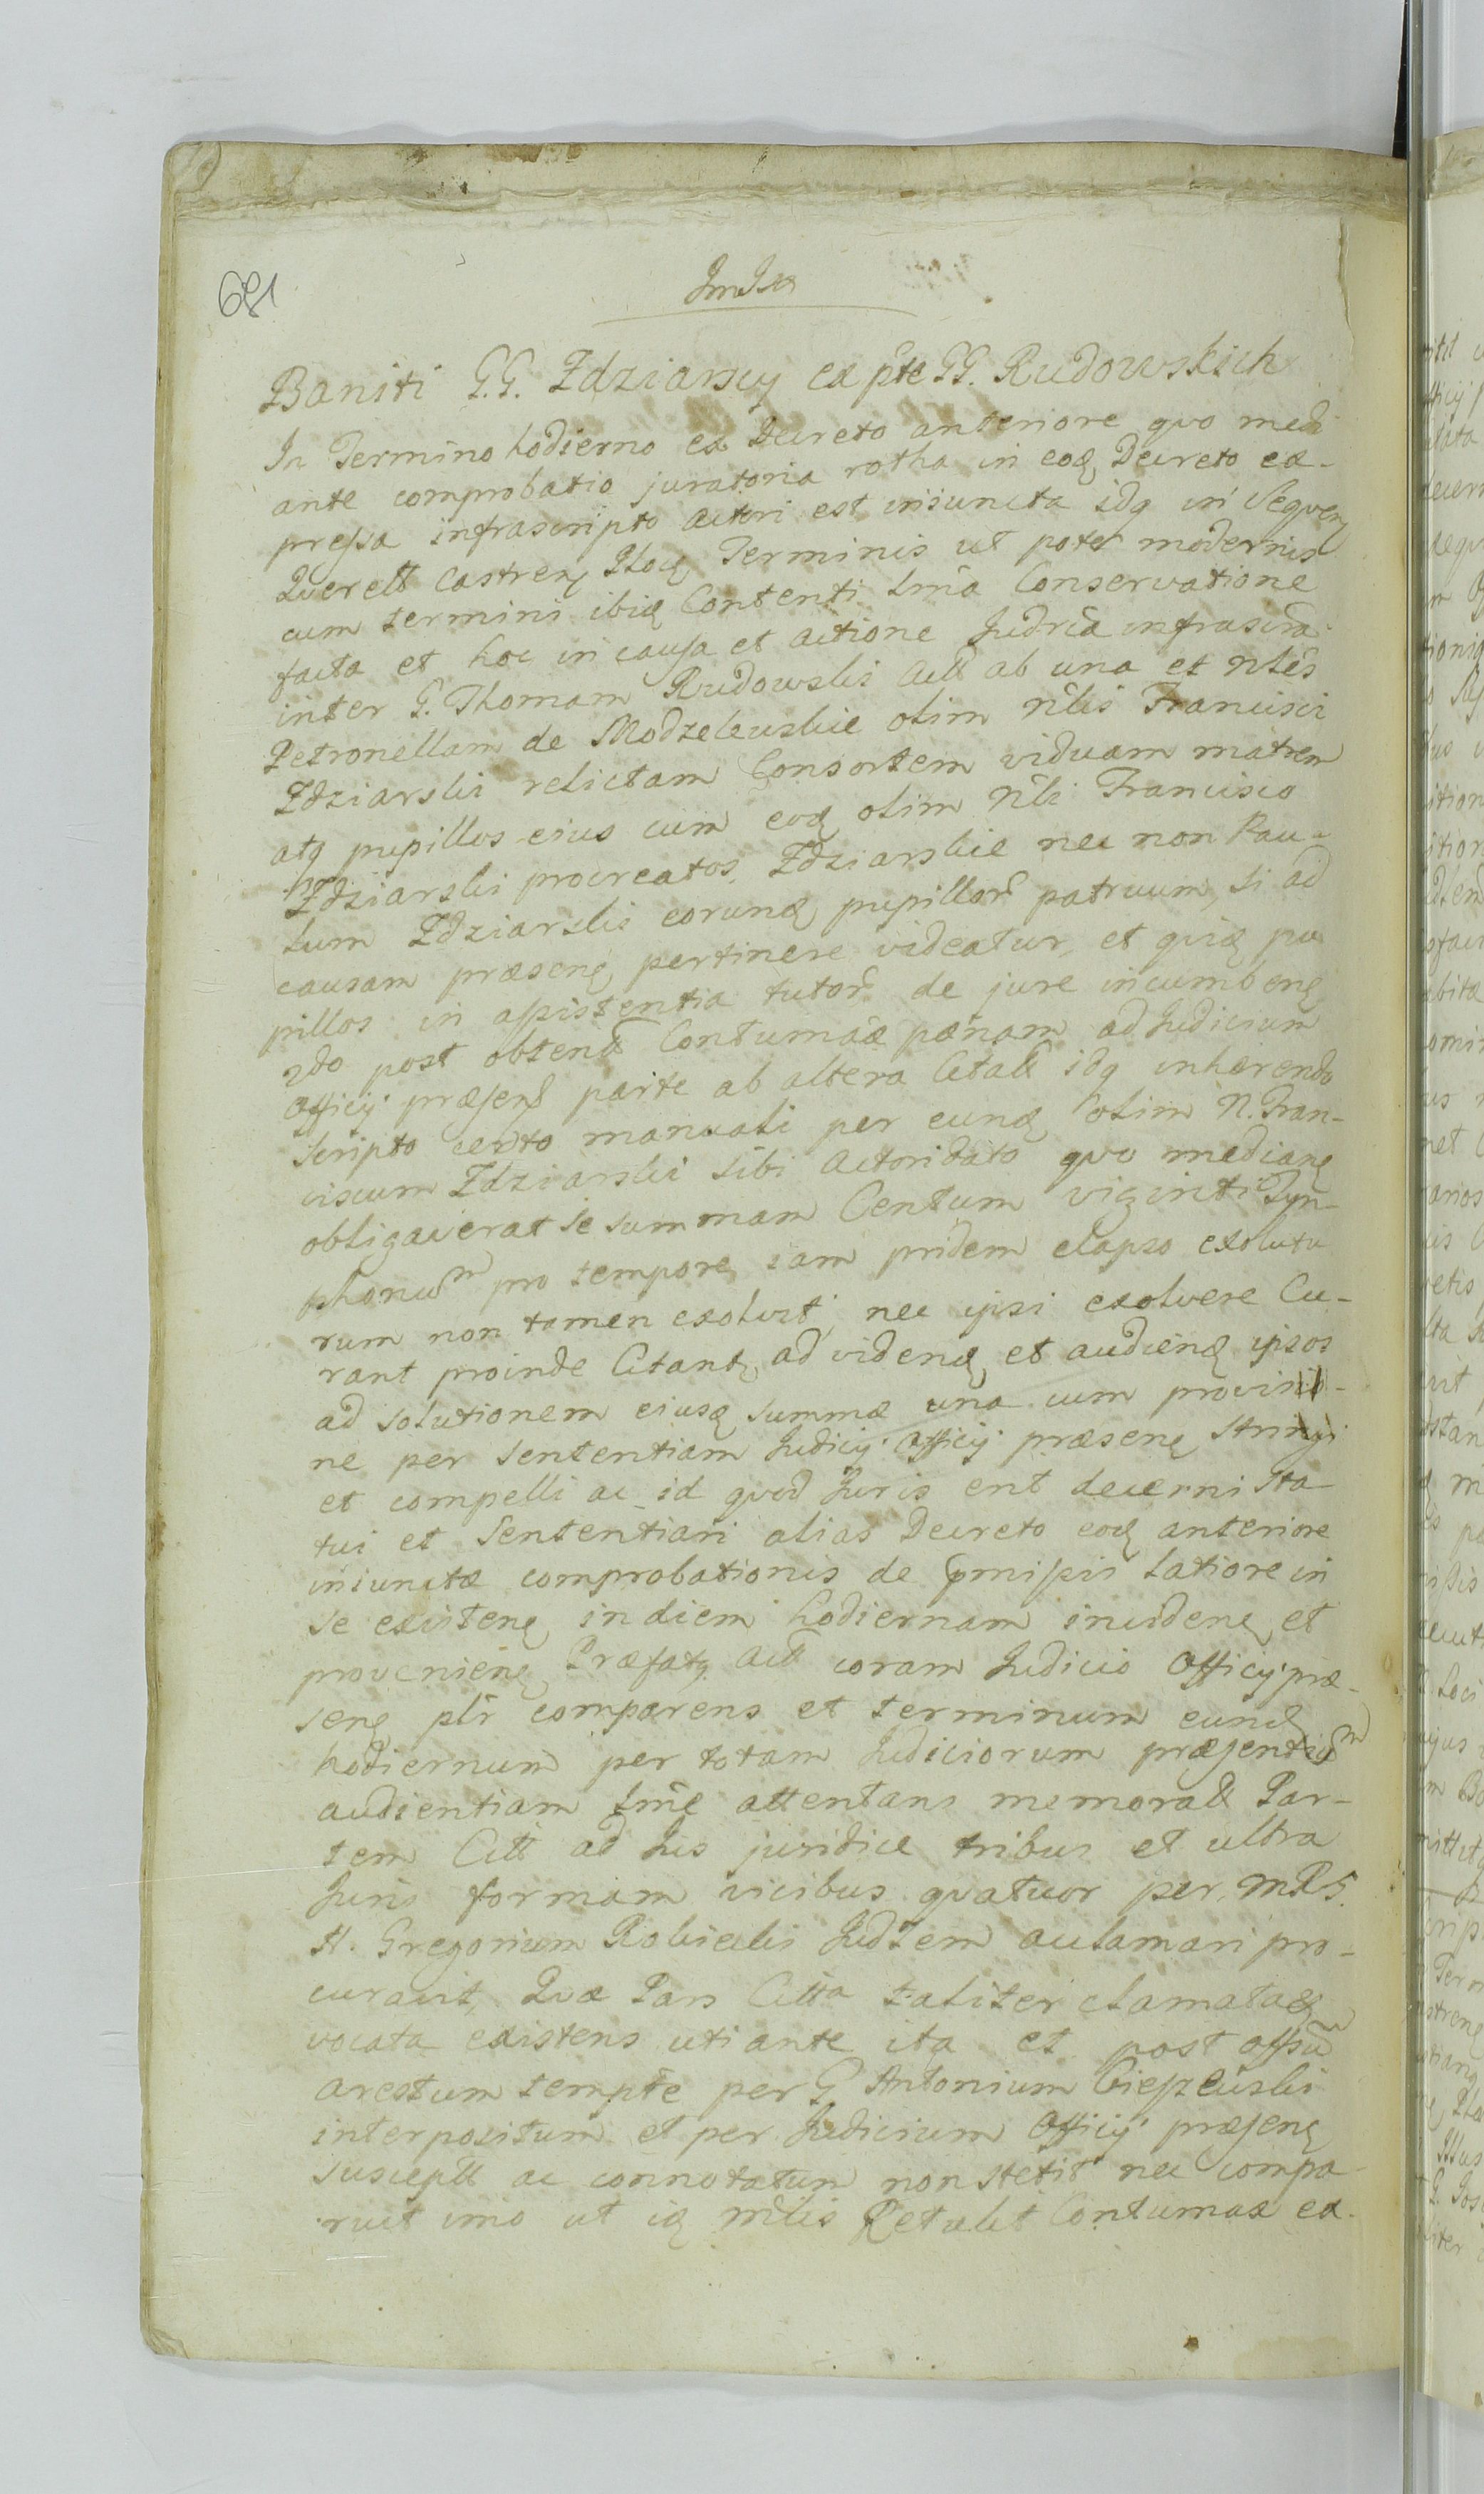 681
Baniti G.G. Zdziarscy ex pte GG. Rudowskich
In Termino hodierno ex Decreto anteriore quo medi
ante comprobatio juratoria rotha in eoq Decreto ex-
pressa infrascripto Actori est iniuncta idq in Sequen
Querell Castren Ploc Terminis ut pote modernis
cum termini ibiq Contenti lma Conservatione
facta et hoc in causa et actione Judria infrascra
inter G. Thomam Rudowski Act ab una et Nles
Petronellam de Modzelewskie olim Nlis Francisci
Zdziarski relictam Consortem viduam matrem
atq pupillos eius cum eoq olim Nli Francisco
Zdziarski procreatos Zdziarskie nec non Pau-
lum Zdziarski eorunq pupillor patruum, si ad
causam præsenq pertinere videatur, et quiq pu
pillos in assistentia tutor de jure incumbenq
2do post obtent Contumaæ pænam ad Judicium
Officij præsens parte ab altera Citatt idq inhærendo
Scripto certo manuali per eunq olim N. Fran-
ciscum Zdziarski sibi Actori dato quo medianq
obligaverat se summam Centum viginti Tyn-
phonum pro tempore iam pridem elapso exolutu
rum non tamen exolvit, nec ipsi exolvere Cu-
rant proinde Citant ad videnq et audienq ipsos
ad solutionem eiusq summæ una cum provisio-
ne per Sententiam Judicij Officij præsenq Stringi
et compelli ac id quod Juris erit decerni sta-
tui et Sententiari alias Decreto eoq anteriore
iniunctæ comprobationis de pmissis latiore in
se existenq in diem hodiernam incidenq et
provenienq Præfatq Act coram Judicio Officij præ-
senq plr comparens et terminum eunq
hodiernum per totam Judiciorum præsentium
audientiam lme attentans memoratt Par-
tem Citt ad Jus juridice tribus et ultra
Juris formam vicibus quatuor per MRS.
H. Gregorium Robicki Judlem acclamari pro-
curavit, Quæ Pars Citta taliter clamataq
vocata existens uti ante ita et post
arestum tempte per G Antonium Ciepzeuski
interpositum et per Judicium Officij præsenq
suscept ac connotatum non stetit nec compa-
ruit imo ut iq Mrlis Retulit Contumax ex-